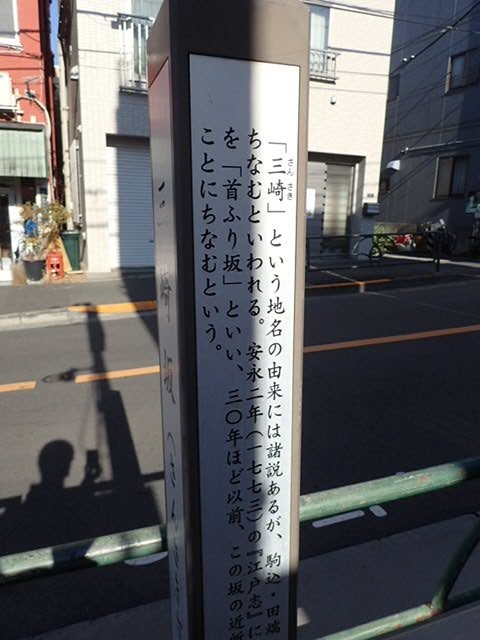 「三崎」という地名の由来には諸説あるが、駒込・田端
さんさき
ちなむといわれる。安永二年（一七七三）の『江戸志』に
を「首ふり坂」といい、三〇年ほど以前、この坂の近所
ことにちなむという。
三崎坂（さんさき